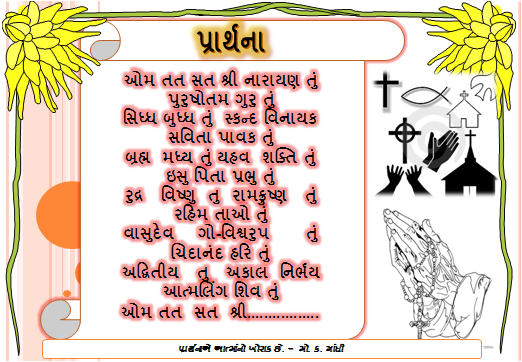 પ્રાર્થના
ઓમ તત સત શ્રી નારાયણ તું
પુરુષોતમ ગુરુ તું
સિધ્ધ બુધ્ધ તું સ્કન્દ વિનાયક
સવિતા પાવક તું
બ્રહ્મ મધ્ય તું યહવ શક્તિ તું
ઇસુ પિતા પ્રભુ તું
રુદ્ર વિષ્ણુ તુ રામકૃષ્ણ તું
રહિમ તાઓ તું
વાસુદેવ ગો-વિશ્વરુપ તું
ચિદાનંદ હરિ તું
અદ્રિતીય તૂ અકાલ નિર્ભય
આત્મલિંગ શિવ તું
ઓમ તત સત શ્રી.................
પ્રાર્થનાએ આત્માંનો ખોરાક છે. – ગો. ક. ગાંધી